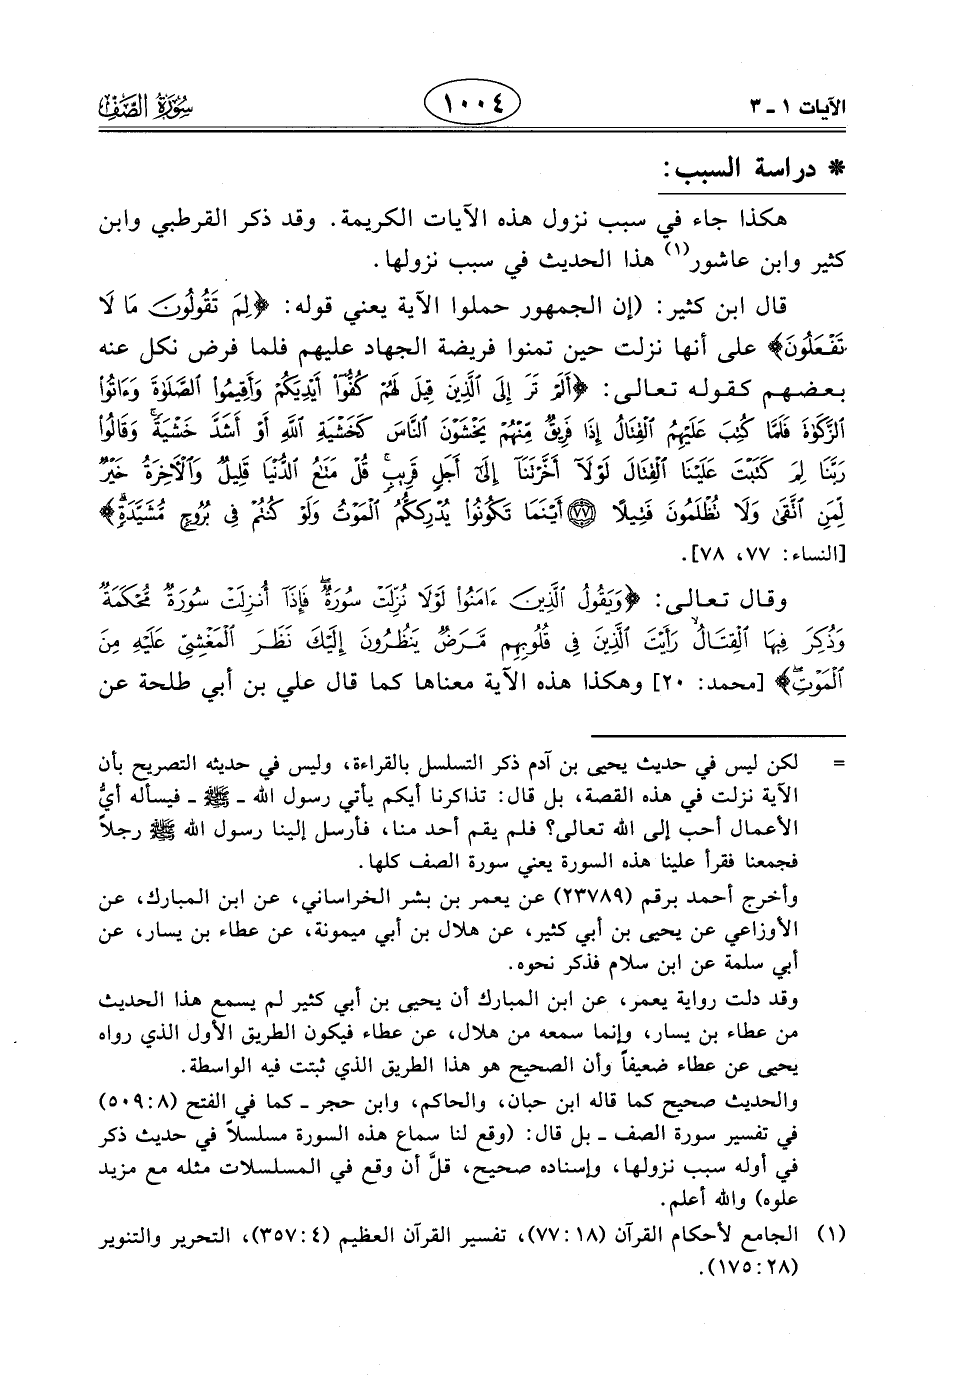 الآيات ١ - ٣
١٠٠٤
سُورَةُ الصَّفِّ
* دراسة السبب:
هكذا جاء في سبب نزول هذه الآيات الكريمة. وقد ذكر القرطبي وابن
كثير وابن عاشور(١) هذا الحديث في سبب نزولها.
قال ابن كثير: (إن الجمهور حملوا الآية يعني قوله: ﴿لِمَ تَقُولُونَ مَا لَا
تَفْعَلُونَ﴾ على أنها نزلت حين تمنوا فريضة الجهاد عليهم فلما فرض نكل عنه
بعضهم كقوله تعالى: ﴿أَلَمْ تَرَ إِلَى ٱلَّذِينَ قِيلَ لَهُمْ كُفُّوٓا۟ أَيْدِيَكُمْ وَأَقِيمُوا۟ ٱلصَّلَوٰةَ وَءَاتُوا۟
ٱلزَّكَوٰةَ فَلَمَّا كُتِبَ عَلَيْهِمُ ٱلْقِتَالُ إِذَا فَرِيقٌ مِّنْهُمْ يَخْشَوْنَ ٱلنَّاسَ كَخَشْيَةِ ٱللَّهِ أَوْ أَشَدَّ خَشْيَةً ۚ وَقَالُوا۟
رَبَّنَا لِمَ كَتَبْتَ عَلَيْنَا ٱلْقِتَالَ لَوْلَآ أَخَّرْتَنَآ إِلَىٰٓ أَجَلٍ قَرِيبٍ ۗ قُلْ مَتَٰعُ ٱلدُّنْيَا قَلِيلٌ وَٱلْـَٔاخِرَةُ خَيْرٌ
لِّمَنِ ٱتَّقَىٰ وَلَا تُظْلَمُونَ فَتِيلًا ٧٧ أَيْنَمَا تَكُونُوا۟ يُدْرِككُّمُ ٱلْمَوْتُ وَلَوْ كُنتُمْ فِى بُرُوجٍ مُّشَيَّدَةٍ ۗ﴾
[النساء: ٧٧، ٧٨].
وقال تعالى: ﴿وَيَقُولُ ٱلَّذِينَ ءَامَنُوا۟ لَوْلَا نُزِّلَتْ سُورَةٌ ۖ فَإِذَآ أُنزِلَتْ سُورَةٌ مُّحْكَمَةٌ
وَذُكِرَ فِيهَا ٱلْقِتَالُ ۙ رَأَيْتَ ٱلَّذِينَ فِى قُلُوبِهِم مَّرَضٌ يَنظُرُونَ إِلَيْكَ نَظَرَ ٱلْمَغْشِىِّ عَلَيْهِ مِنَ
ٱلْمَوْتِ ۖ﴾ [محمد: ٢٠] وهكذا هذه الآية معناها كما قال علي بن أبي طلحة عن
= لكن ليس في حديث يحيى بن آدم ذكر التسلسل بالقراءة، وليس في حديثه التصريح بأن
الآية نزلت في هذه القصة، بل قال: تذاكرنا أيكم يأتي رسول الله - ﷺ - فيسأله أيُّ
الأعمال أحب إلى الله تعالى؟ فلم يقم أحد منا، فأرسل إلينا رسول الله ﷺ رجلاً
فجمعنا فقرأ علينا هذه السورة يعني سورة الصف كلها.
وأخرج أحمد برقم (٢٣٧٨٩) عن يعمر بن بشر الخراساني، عن ابن المبارك، عن
الأوزاعي عن يحيى بن أبي كثير، عن هلال بن أبي ميمونة، عن عطاء بن يسار، عن
أبي سلمة عن ابن سلام فذكر نحوه.
وقد دلت رواية يعمر، عن ابن المبارك أن يحيى بن أبي كثير لم يسمع هذا الحديث
من عطاء بن يسار، وإنما سمعه من هلال، عن عطاء فيكون الطريق الأول الذي رواه
يحيى عن عطاء ضعيفاً وأن الصحيح هو هذا الطريق الذي ثبتت فيه الواسطة.
والحديث صحيح كما قاله ابن حبان، والحاكم، وابن حجر - كما في الفتح (٥٠٩:٨)
في تفسير سورة الصف - بل قال: (وقع لنا سماع هذه السورة مسلسلاً في حديث ذكر
في أوله سبب نزولها، وإسناده صحيح، قلَّ أن وقع في المسلسلات مثله مع مزيد
علوه) والله أعلم.
(١) الجامع لأحكام القرآن (٧٧:١٨)، تفسير القرآن العظيم (٣٥٧:٤)، التحرير والتنوير
(١٧٥:٢٨).